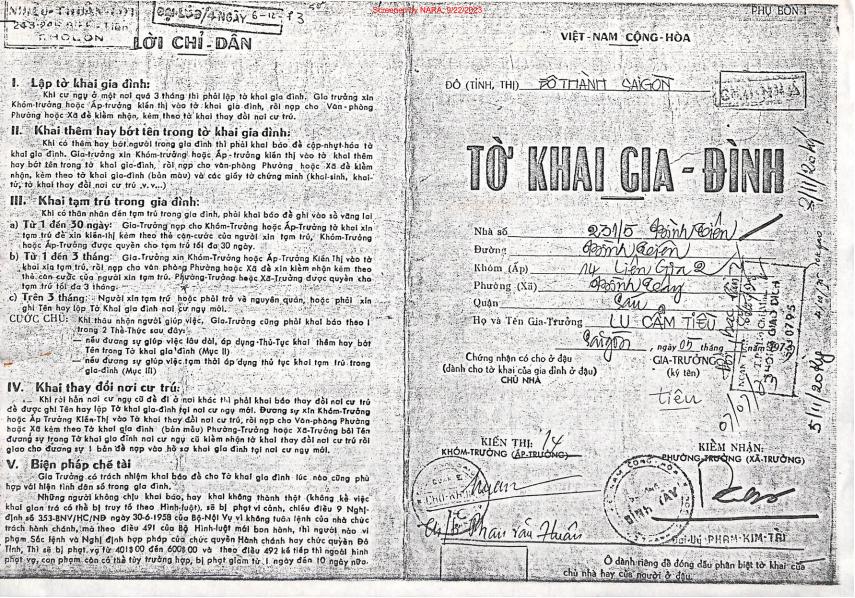 Screened by NARA, 9/22/2023
LỜI CHỈ-DẪN
I. Lập tờ khai gia đình:
Khi cư ngụ ở một nơi quá 3 tháng thì phải lập tờ khai gia đình. Gia trưởng xin
Khóm-trưởng hoặc Ấp-trưởng kiến thị vào tờ khai gia đình, rồi nạp cho Văn-phòng
Phường hoặc Xã để kiểm nhận, kèm theo tờ khai thay đổi nơi cư trú.
II. Khai thêm hay bớt tên trong tờ khai gia đình:
Khi có thêm hay bớt người trong gia đình thì phải khai báo để cập-nhựt-hóa tờ
khai gia đình. Gia-trưởng xin Khóm-trưởng hoặc Ấp-trưởng kiến thị vào tờ khai thêm
hay bớt tên trong tờ khai gia-đình, rồi nạp cho văn-phòng Phường hoặc Xã để kiểm
nhận, kèm theo tờ khai gia-đình (bản mầu) và các giấy tờ chứng minh (khai-sinh, khai-
tử, tờ khai thay đổi nơi cư trú .v.v...)
III. Khai tạm trú trong gia đình:
Khi có thân nhân đến tạm trú trong gia đình, phải khai báo để ghi vào sổ vãng lai
a) Từ 1 đến 30 ngày: Gia-Trưởng nạp cho Khóm-Trưởng hoặc Ấp-Trưởng tờ khai xin
tạm trú để xin kiến-thị kèm theo thẻ căn-cước của người xin tạm trú, Khóm-Trưởng
hoặc Ấp-Trưởng được quyền cho tạm trú tối đa 30 ngày.
b) Từ 1 đến 3 tháng: Gia-Trưởng xin Khóm-Trưởng hoặc Ấp-Trưởng Kiến Thị vào tờ
khai xin tạm trú, rồi nạp cho văn phòng Phường hoặc Xã để xin kiểm nhận kèm theo
thẻ căn-cước của người xin tạm trú. Phường-Trưởng hoặc Xã-Trưởng được quyền cho
tạm trú tối đa 3 tháng.
c) Trên 3 tháng: Người xin tạm trú hoặc phải trở về nguyên quán, hoặc phải xin
ghi Tên hay lập Tờ khai Gia đình nơi cư ngụ mới.
CƯỚC CHÚ: Khi thâu nhận người giúp việc, Gia-Trưởng cũng phải khai báo theo 1
trong 2 Thể-Thức sau đây:
— nếu đương sự giúp việc lâu dài, áp dụng-Thủ-Tục khai thêm hay bớt
Tên trong Tờ khai gia đình (Mục II)
— nếu đương sự giúp việc tạm thời áp dụng thủ tục khai tạm trú trong
gia-đình (Mục III)
IV. Khai thay đổi nơi cư trú:
Khi rời hẳn nơi cư ngụ cũ để đi ở nơi khác thì phải khai báo thay đổi nơi cư trú
để được ghi Tên hay lập Tờ khai gia-đình tại nơi cư ngụ mới. Đương sự xin Khóm-Trưởng
hoặc Ấp Trưởng Kiến-Thị vào Tờ khai thay đổi nơi cư trú, rồi nạp cho văn-phòng Phường
hoặc Xã kèm theo Tờ khai gia-đình (bản mẫu) Phường-Trưởng hoặc Xã-Trưởng bôi Tên
đương sự trong Tờ khai gia đình nơi cư ngụ cũ kiểm nhận tờ khai thay đổi nơi cư trú rồi
giao cho đương sự 1 bản để nạp vào hồ sơ khai gia đình tại nơi cư ngụ mới.
V. Biện pháp chế tài
Gia Trưởng có trách nhiệm khai báo để cho Tờ khai gia đình lúc nào cũng phù
hợp với hiện tình dân số trong gia đình.
Những người không chịu khai báo, hay khai không thành thật (không kể việc
khai gian trá có thể bị truy tố theo Hình-luật), sẽ bị phạt vi cảnh, chiếu điều 9 Nghị-
định số 353-BNV/HC/NĐ ngày 30-6-1958 của Bộ-Nội Vụ vì không tuân lệnh của nhà chức
trách hành chánh, mà theo điều 491 của Bộ Hình-luật mới ban hành, thì người nào vi
phạm Sắc lệnh và Nghị định hợp pháp của chức quyền Hành chánh hay chức quyền Đô
Tỉnh, Thì sẽ bị phạt vạ từ 401$00 đến 600$00 và theo điều 492 kế tiếp thì ngoài hình
phạt vạ, can phạm còn có thể tùy trường hợp, bị phạt giam từ 1 ngày đến 10 ngày nữa.
PHỤ BỔN I
VIỆT-NAM CỘNG-HÒA
ĐÔ (TỈNH, THỊ) ĐÔ THÀNH SAIGON
TỜ KHAI GIA-ĐÌNH
Nhà số 231/5 Bình Tiên
Đường Bình Tiên
Khóm (Ấp) 14 Liên Gia 2
Phường (Xã) Bình Tây
Quận Sáu
Họ và Tên Gia-Trưởng LU CẨM TIÊU
Saigon, ngày 05 tháng 1973
Chứng nhận có cho ở đậu
(dành cho tờ khai của gia đình ở đậu)
CHỦ NHÀ
GIA-TRƯỞNG
(ký tên)
tiêu
KIẾN THỊ: 14
KHÓM-TRƯỞNG (ẤP-TRƯỞNG)
Phan Văn Huấn
KIỂM NHẬN:
PHƯỜNG-TRƯỞNG (XÃ-TRƯỞNG)
BÌNH TÂY
Đại-Úy PHẠM-KIM-TÀI
Ô dành riêng để đóng dấu phân biệt tờ khai của
chủ nhà hay của người ở đậu.